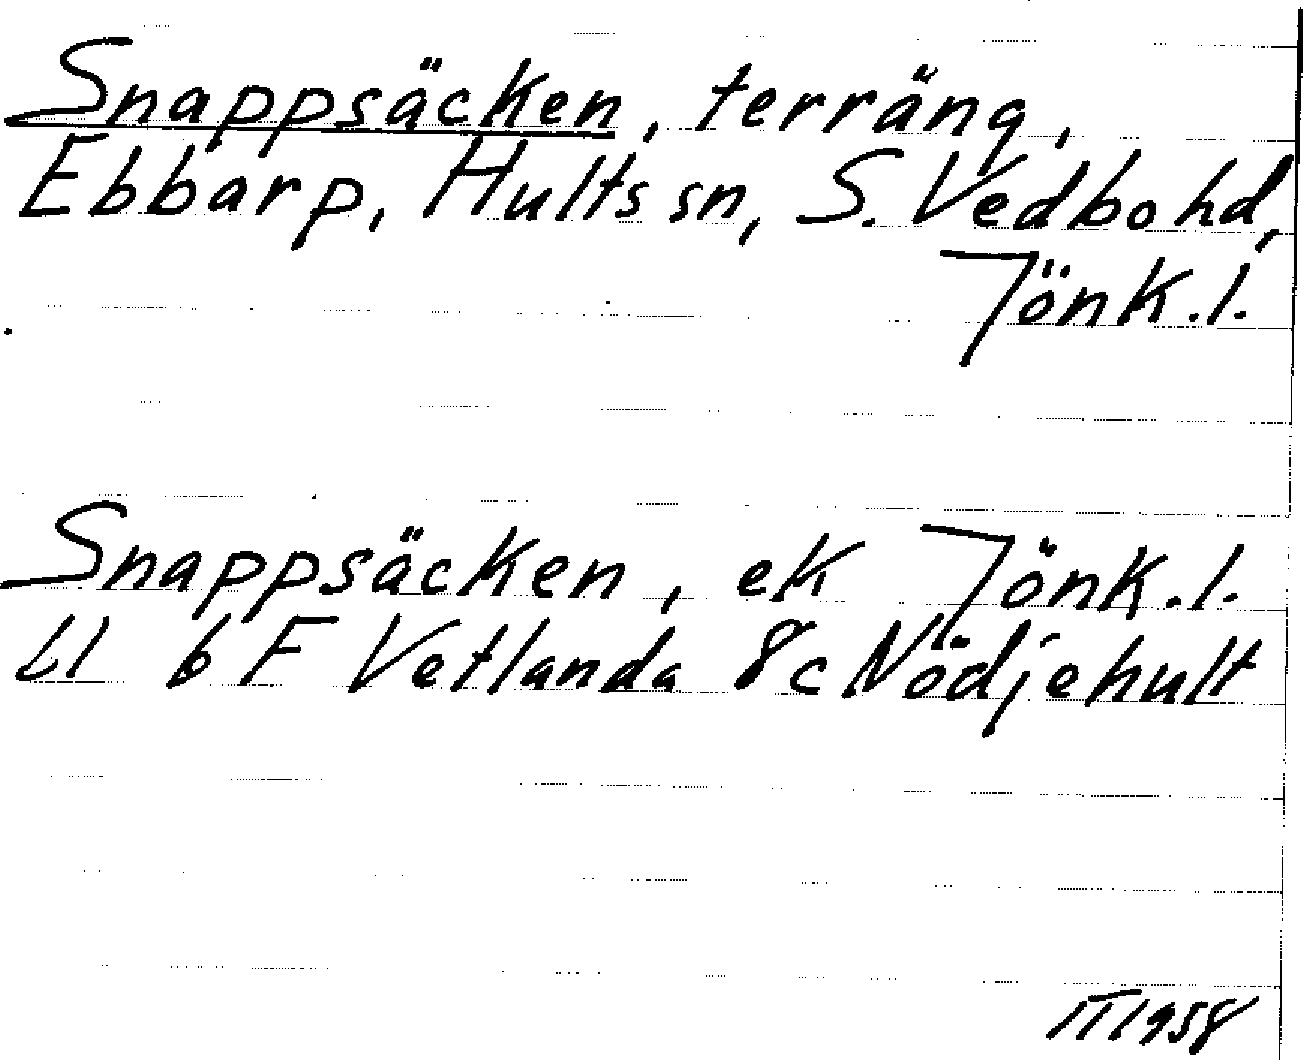 Snappsäcken, terräng,
Ebbarp, Hults sn, S. Vedbo hd,
Jönk.l.
Snappsäcken, ek Jönk.l.
6 F Vetlanda 8c Nödjehult
1958